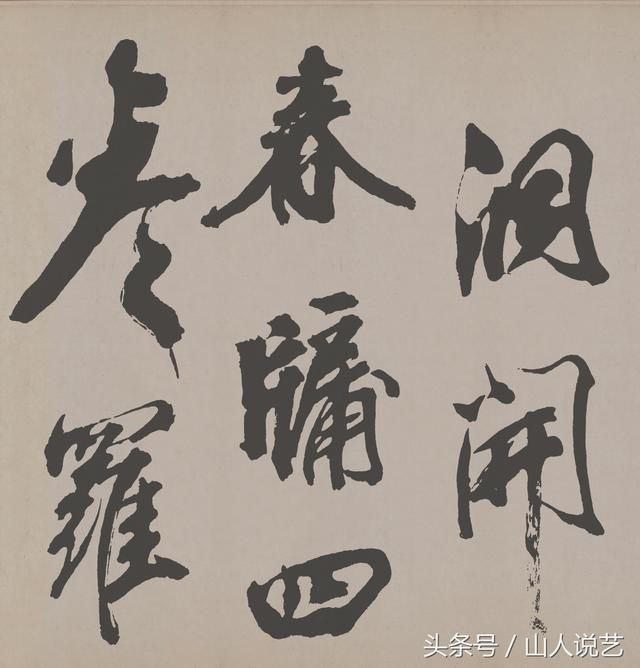 洞開
春牖四
卷羅
头条号 / 山人说艺